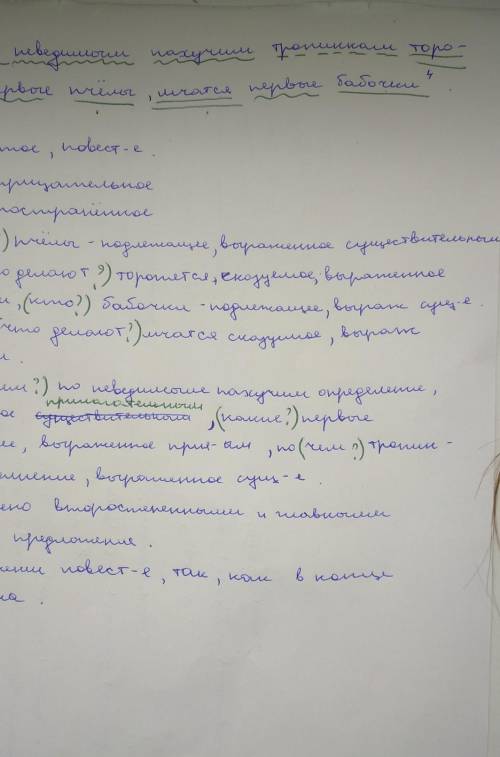 неведимым пахучим тропинкам торо-
ервые пчёлы, мчатся первые бабочки⁴.
тое, повест-е.
трицательное
спостранённое
) пчёлы - подлежащее, выраженное существительным
о делают?) торопятся, сказуемое, выраженное
и, (кто?) бабочки - подлежащее, выраж сущ-е.
(что делают?) мчатся сказуемое, выраж
м.
им?) по неведимыме пахучим определение,
прилагательным
ое существительном, (какие?) первые
ие, выраженное при-ым, по (чем?) тропин-
лнение, выраженное сущ-е.
ено второстепенными и главными
предложения.
жении повест-е, так, как в конце
ка.